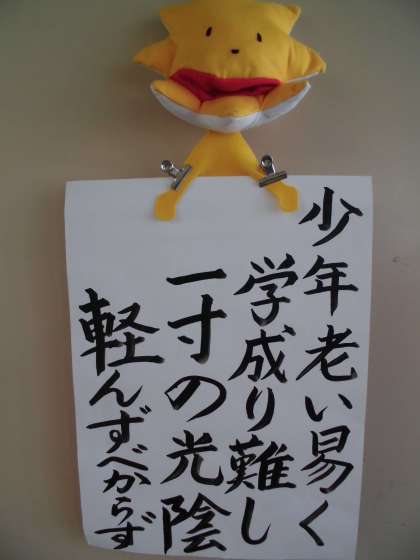 少年老い易く
学成り難し
一寸の光陰
軽んずべからず